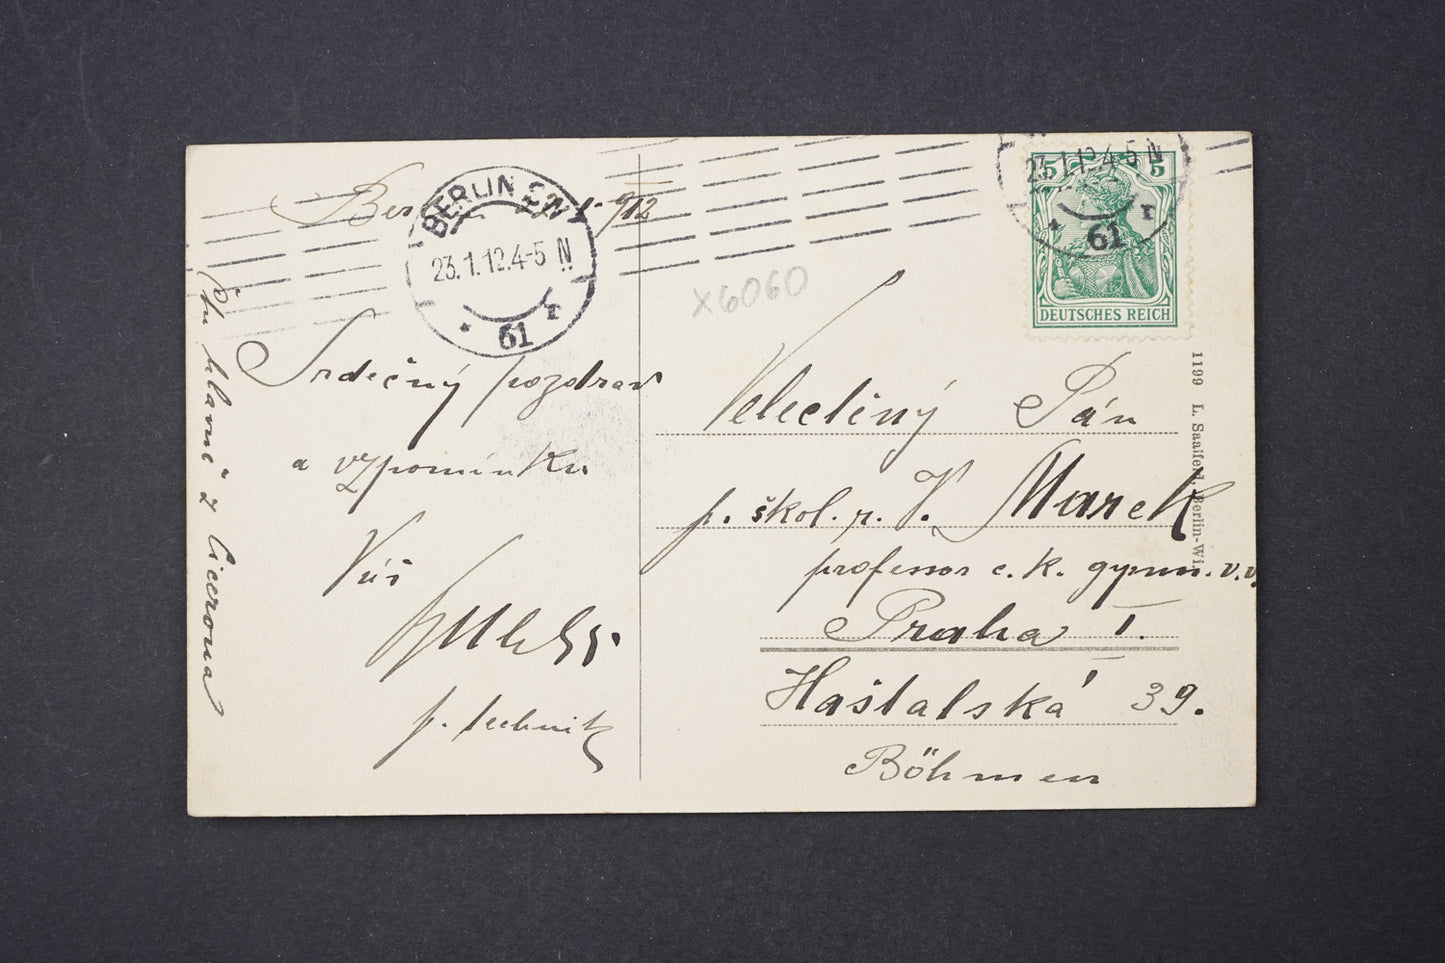 BERLIN SW
23.1.12.4-5 N
61 r
912
23.1.12.4-5 N
61 r
5 5
DEUTSCHES REICH
x6060
Srdečný pozdrav
a vzpomínku
Váš
p. technik
hlavně z Cicerona
Velectěný Pán
p. škol. r. V. Marek
professor c. k. gymn. v. v.
Praha I.
Haštalská 39.
Böhmen
1199 L. Saalfeld, Berlin-Wi